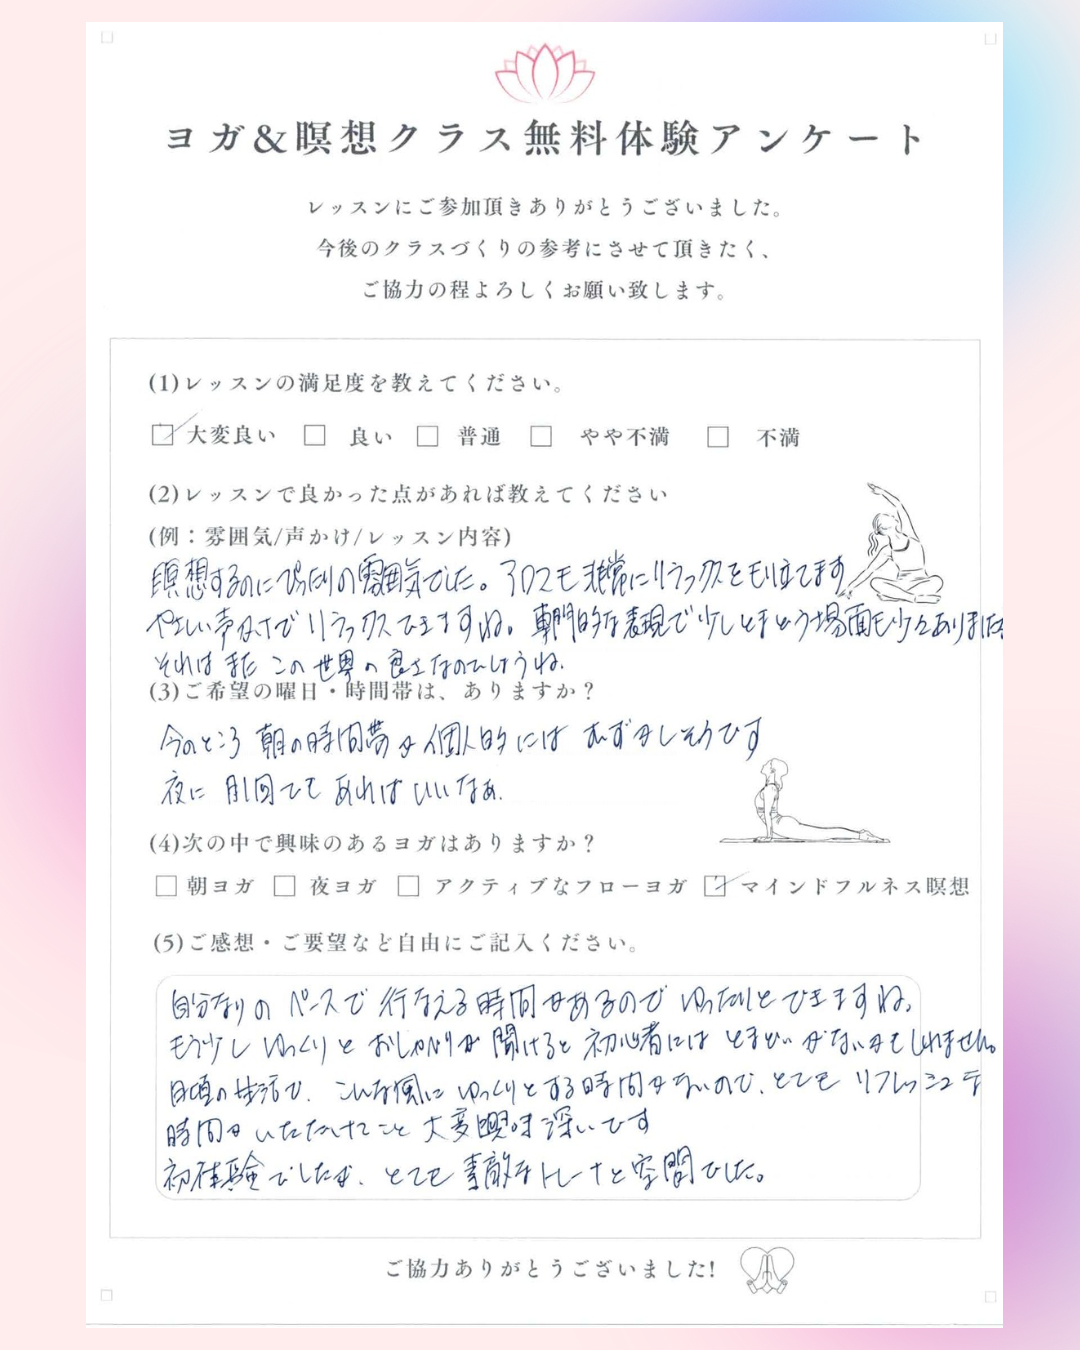 ヨガ&瞑想クラス無料体験アンケート
レッスンにご参加頂きありがとうございました。
今後のクラスづくりの参考にさせて頂きたく、
ご協力の程よろしくお願い致します。
(1)レッスンの満足度を教えてください。
大変良い 良い 普通 やや不満 不満
(2)レッスンで良かった点があれば教えてください
(例：雰囲気/声かけ/レッスン内容)
瞑想するのにぴったりの雰囲気でした。アロマも非常にリラックスをもり立てます
やさしい声かけでリラックスできますね。専門的な表現で少しとまどう場面も少々ありました
それはまたこの世界の良さなのでしょうね.
(3)ご希望の曜日・時間帯は、ありますか？
今のところ 朝の時間帯が個人的には むずかしそうです
夜に 月1回でも あればいいなぁ.
(4)次の中で興味のあるヨガはありますか？
朝ヨガ 夜ヨガ アクティブなフローヨガ マインドフルネス瞑想
(5)ご感想・ご要望など自由にご記入ください。
自分なりの ペースで 行なえる時間があるので ゆったりとできますね。
もう少し ゆっくりと おしゃべりが 聞けると 初心者には とまどいがないかもしれません。
日頃の生活で、こんな風に ゆっくりとする時間がないので、とても リフレッシュ
時間が いただけたこと 大変興味深いです
初体験でしたが、とても 素敵なトレーナと空間でした。
ご協力ありがとうございました!